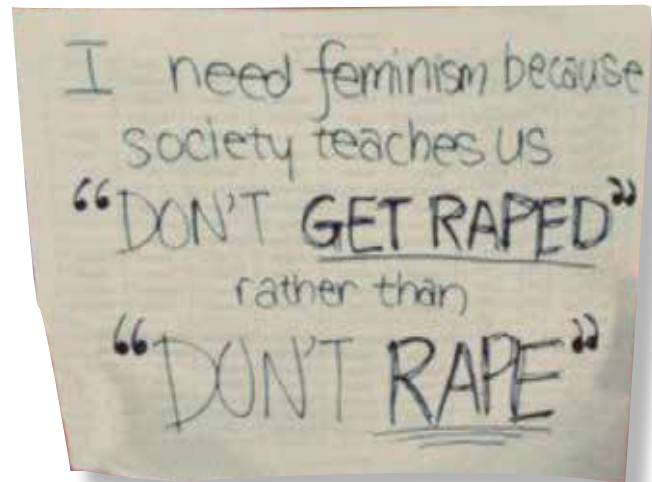 I need feminism because
society teaches us
“DON'T GET RAPED”
rather than
“DON'T RAPE”